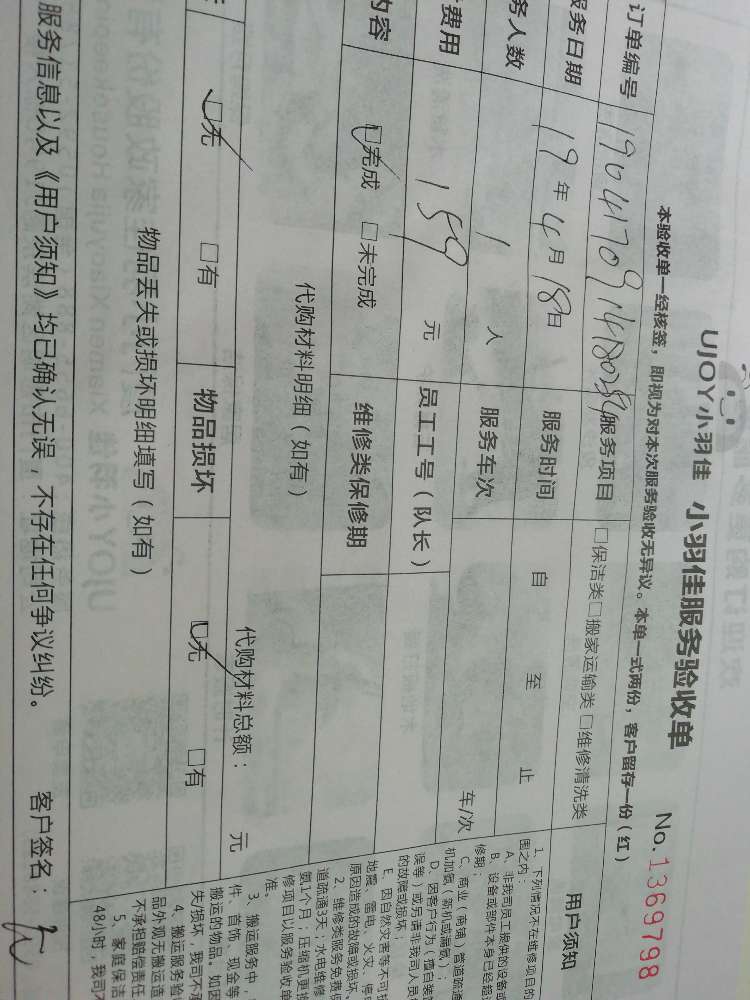 UJOY小羽佳 小羽佳服务验收单 No.1369798
本验收单一经核签，即视为对本次服务验收无异议。本单一式两份，客户留存一份（红）
订单编号 服务项目 □保洁类□搬家运输类□维修清洗类
服务日期 19年4月18日 服务时间 自 至 止
务人数 1 人 服务车次 车/次
费用 159 元 员工工号（队长）
内容 □完成 □未完成 维修类保修期
代购材料明细（如有） 代购材料总额： 元
□无 □有 物品损坏 □无 □有
物品丢失或损坏明细填写（如有）
服务信息以及《用户须知》均已确认无误，不存在任何争议纠纷。 客户签名：
用户须知
1、下列情况不在维修项目的
围之内：
A、非我司员工提供的设备或
B、设备或部件本身已经超
修期；
C、商业（商铺）管道疏通
机加氨、新机或漏氨）；
D、因客户行为（擅自装
误等）或另请非我司人员
的故障或损坏；
E、因自然灾害等不可抗
地震、雷电、火灾、
原因造成的故障或损坏。
2、维修类服务免费保
道疏通3天；水电维修
氨1个月；压缩机更换
修项目以服务验收单
准。
3、搬运服务中，
件、首饰、现金等
搬运的物品，如因
失/损坏，我司不承
4、搬运服务验
品外观无搬运造
不承担赔偿责任
5、家庭保洁
48小时，我司不